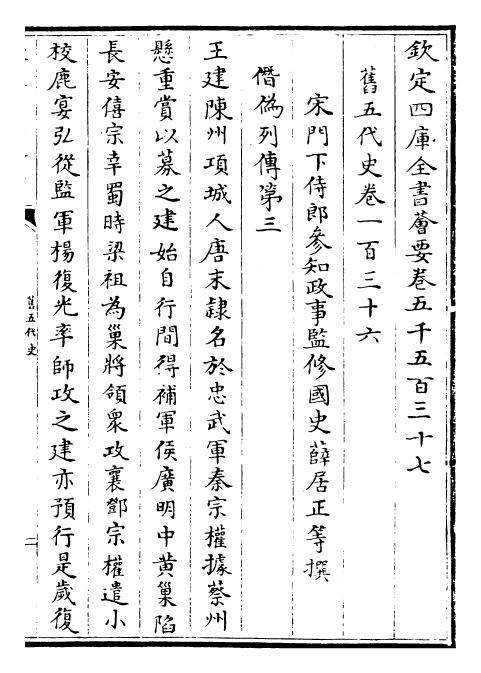 欽定四庫全書薈要卷五千五百三十七
舊五代史卷一百三十六
宋門下侍郎參知政事監修國史薛居正等撰
僭偽列傳第三
王建陳州項城人唐末隸名於忠武軍秦宗權據蔡州
懸重賞以募之建始自行間得補軍侯廣明中黃巢陷
長安僖宗幸蜀時梁祖為巢將領衆攻襄鄧宗權遣小
校鹿宴弘從監軍楊復光率師攻之建亦預行是歲復
舊五代史